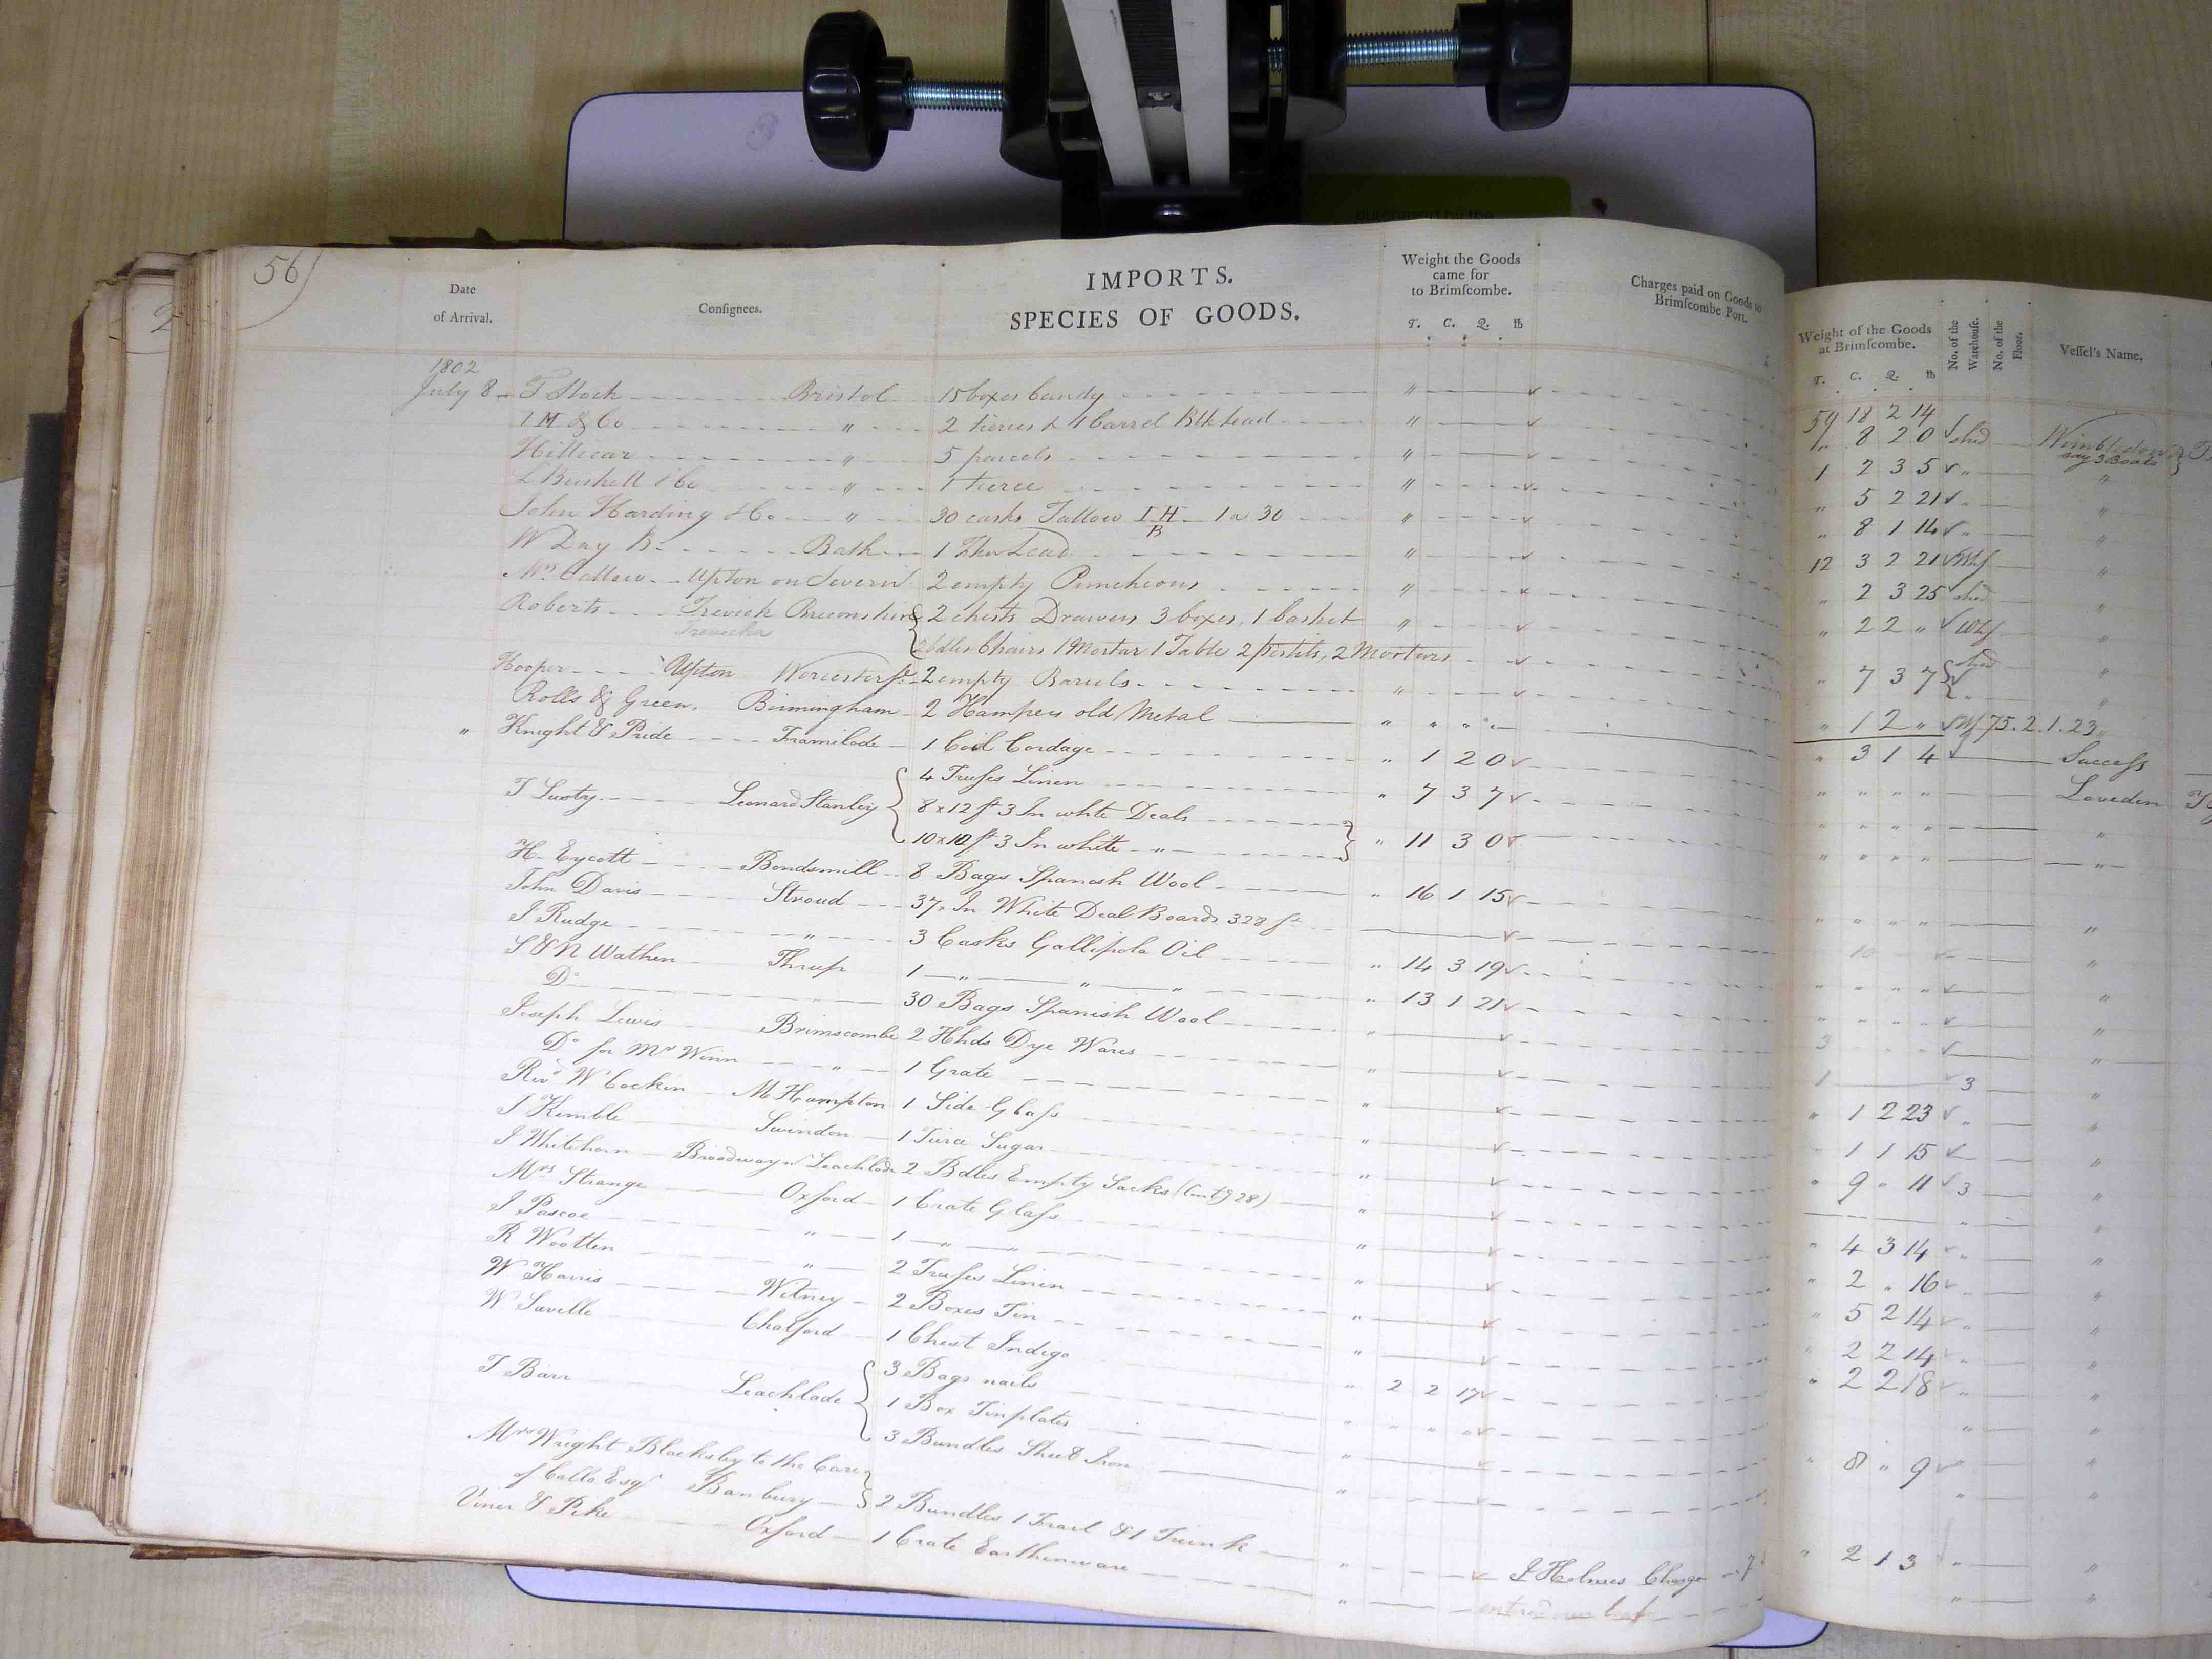 purchased by the
56
IMPORTS.
Date of Arrival.
Consignees.
SPECIES OF GOODS.
Weight the Goods came for to Brimscombe.
T. C. Q. lb
Charges paid on Goods to Brimscombe Port.
Weight of the Goods at Brimscombe.
T. C. Q. lb
No. of the Warehouse.
No. of the Floor.
Vessel's Name.
1802
July 8 T Stock Bristol 15 boxes Candy " 59 18 2 14
" 8 2 0 shed Wimbledon
say 3 Boats
I M & Co " 2 tierces & 1 barrel Blk Lead " 1 2 3 5 " "
Hillicar " 5 parcels " " 5 2 21 "
L Bushell & Co " 1 tierce " " 8 1 14 " "
John Harding & Co " 30 casks Tallow I H B 1 a 30 " 12 3 2 21 Whf "
W Day Bath 1 Lead " " 2 3 25 shed "
Mrs Callow Upton on Severn 2 empty Puncheons " " 2 2 " Whf "
Roberts Trevick Breconshire 2 chests Drawers 3 boxes, 1 basket " " 7 3 7 shed "
Trevecka
bdles Chairs 1 Mortar 1 Table 2 pestils, 2 Mortars
Hooper Upton Worcestersh 2 empty Barrels " " 1 2 " Whf 75. 2. 1. 23
Rolls & Green, Birmingham 2 Hampers old Metal " " " " " 3 1 4 Success
" Knight & Pride Framilode 1 Coil Cordage " 1 2 0 " " " " Loveden
T Lusty Leonard Stanley 4 Trusses Linen " 7 3 7 " " " " "
8 x 12 ft 3 In white Deals
10 x 10 ft 3 In white " " 11 3 0 " " " "
H. Eycott Bondsmill 8 Bags Spanish Wool " 16 1 15 " " " " "
John Davis Stroud 37, In White Deal Boards 328 ft 10 "
J Rudge " 3 Casks Gallipola Oil " 14 3 19 " " " " "
S & N Wathen Thrup 1 " " " 13 1 21 " " " " "
Do " 30 Bags Spanish Wool " 3 "
Joseph Lewis Brimscombe 2 Hhds Dye Wares " 1 3 "
Do for Mr Winn " 1 Grate " " 1 2 23 " "
Revd W Cockin M Hampton 1 Side Glass " 1 1 15 "
J Kemble Swindon 1 Tierce Sugar " " 9 " 11 3 "
J Whitehorn Broadway nr Leachlade 2 Bdles Empty Sacks (Contg 28) " "
Mrs Strange Oxford 1 Crate Glass " " 4 3 14 " "
J Pascoe " 1 " " " " 2 " 16 " "
R Wootten " 2 Trusses Linen " " 5 2 14 " "
W Harris Witney 2 Boxes Tin " " 2 2 14 " "
W Saville Chalford 1 Chest Indigo " 2 2 17 " 2 2 18 " "
T Barr Leachlade 3 Bags nails " " " " " "
1 Box Tinplates " " 8 " 9 " "
3 Bundles Sheet Iron " " "
Mrs Wright Blacksley to the Care
of Calls Esqr Banbury 2 Bundles 1 Frail & 1 Trunk " J Holmes Charge " 2 1 3 " "
Viner & Pike Oxford 1 Crate Earthenware " " "